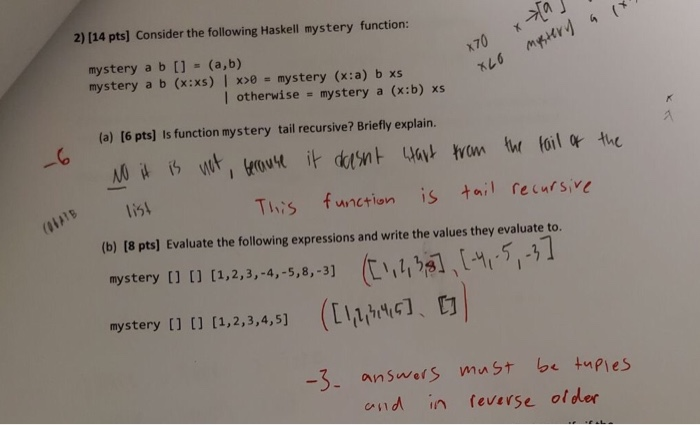 2) [14 pts] Consider the following Haskell mystery function:
x >[a]
x>0
x<0
mystery a (x:
mystery a b [] = (a,b)
mystery a b (x:xs) | x>0 = mystery (x:a) b xs
| otherwise = mystery a (x:b) xs
(a) [6 pts] Is function mystery tail recursive? Briefly explain.
-6
NO it is not, because it doesnt start from the tail of the
list
This function is tail recursive
(b) [8 pts] Evaluate the following expressions and write the values they evaluate to.
mystery [] [] [1,2,3,-4,-5,8,-3] ([1,2,3,8], [-4,-5,-3]
mystery [] [] [1,2,3,4,5] ([1,2,3,4,5], [])
-3- answers must be tuples
and in reverse order